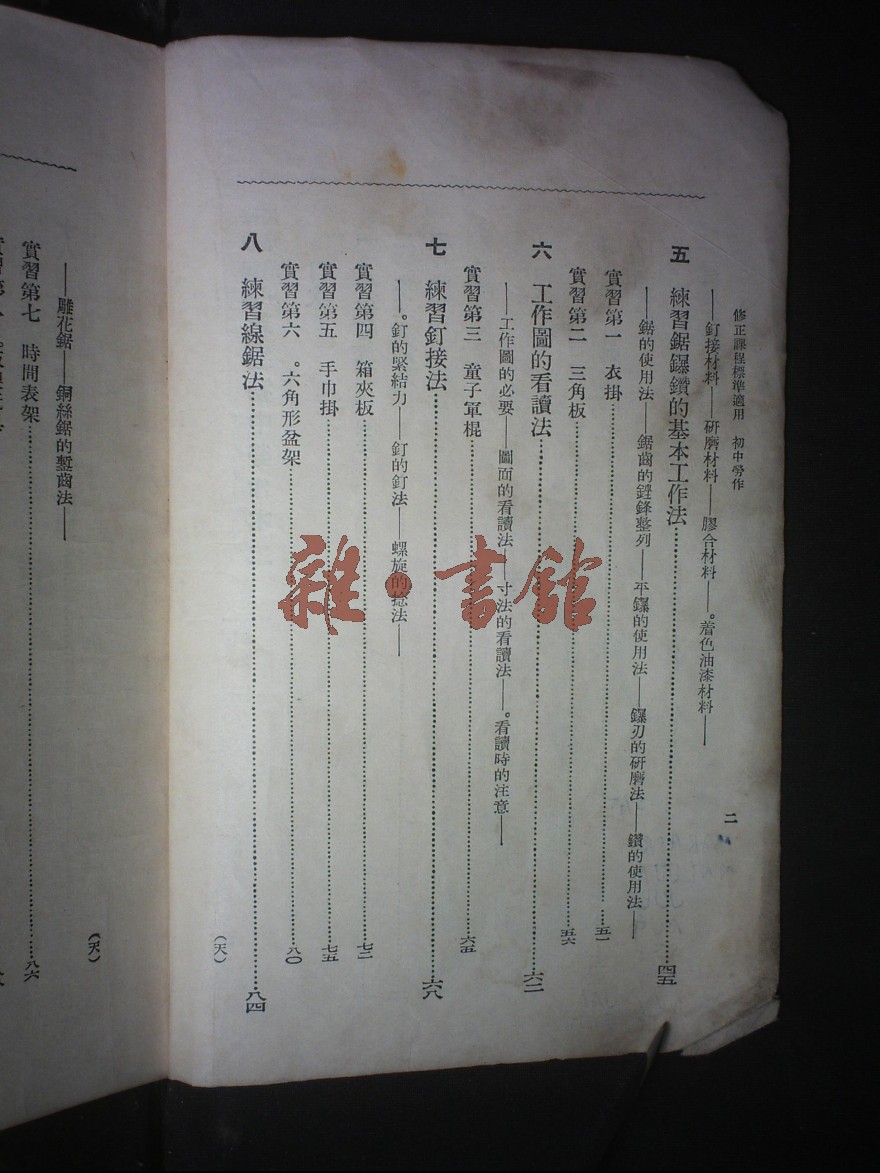 修正課程標準適用　初中勞作
二
——釘接材料——研磨材料——膠合材料——。着色油漆材料——
五　練習鋸鑤鑽的基本工作法……四五
——鋸的使用法——鋸齒的銼鋒整列——平鑤的使用法——鑤刃的研磨法——鑽的使用法——
實習第一　衣掛……五一
實習第二　三角板……五六
六　工作圖的看讀法……六二
——工作圖的必要——圖面的看讀法——寸法的看讀法——。看讀時的注意——
實習第三　童子軍棍……六五
七　練習釘接法……六八
——。釘的緊結力——釘的釘法——螺旋的捻法——
實習第四　箱夾板……七二
實習第五　手巾掛……七五
實習第六　。六角形盆架……八〇
八　練習線鋸法……八四
（天）
雜·書館
（天）
——雕花鋸——銅絲鋸的鏨齒法——
實習第七　時間表架……八六